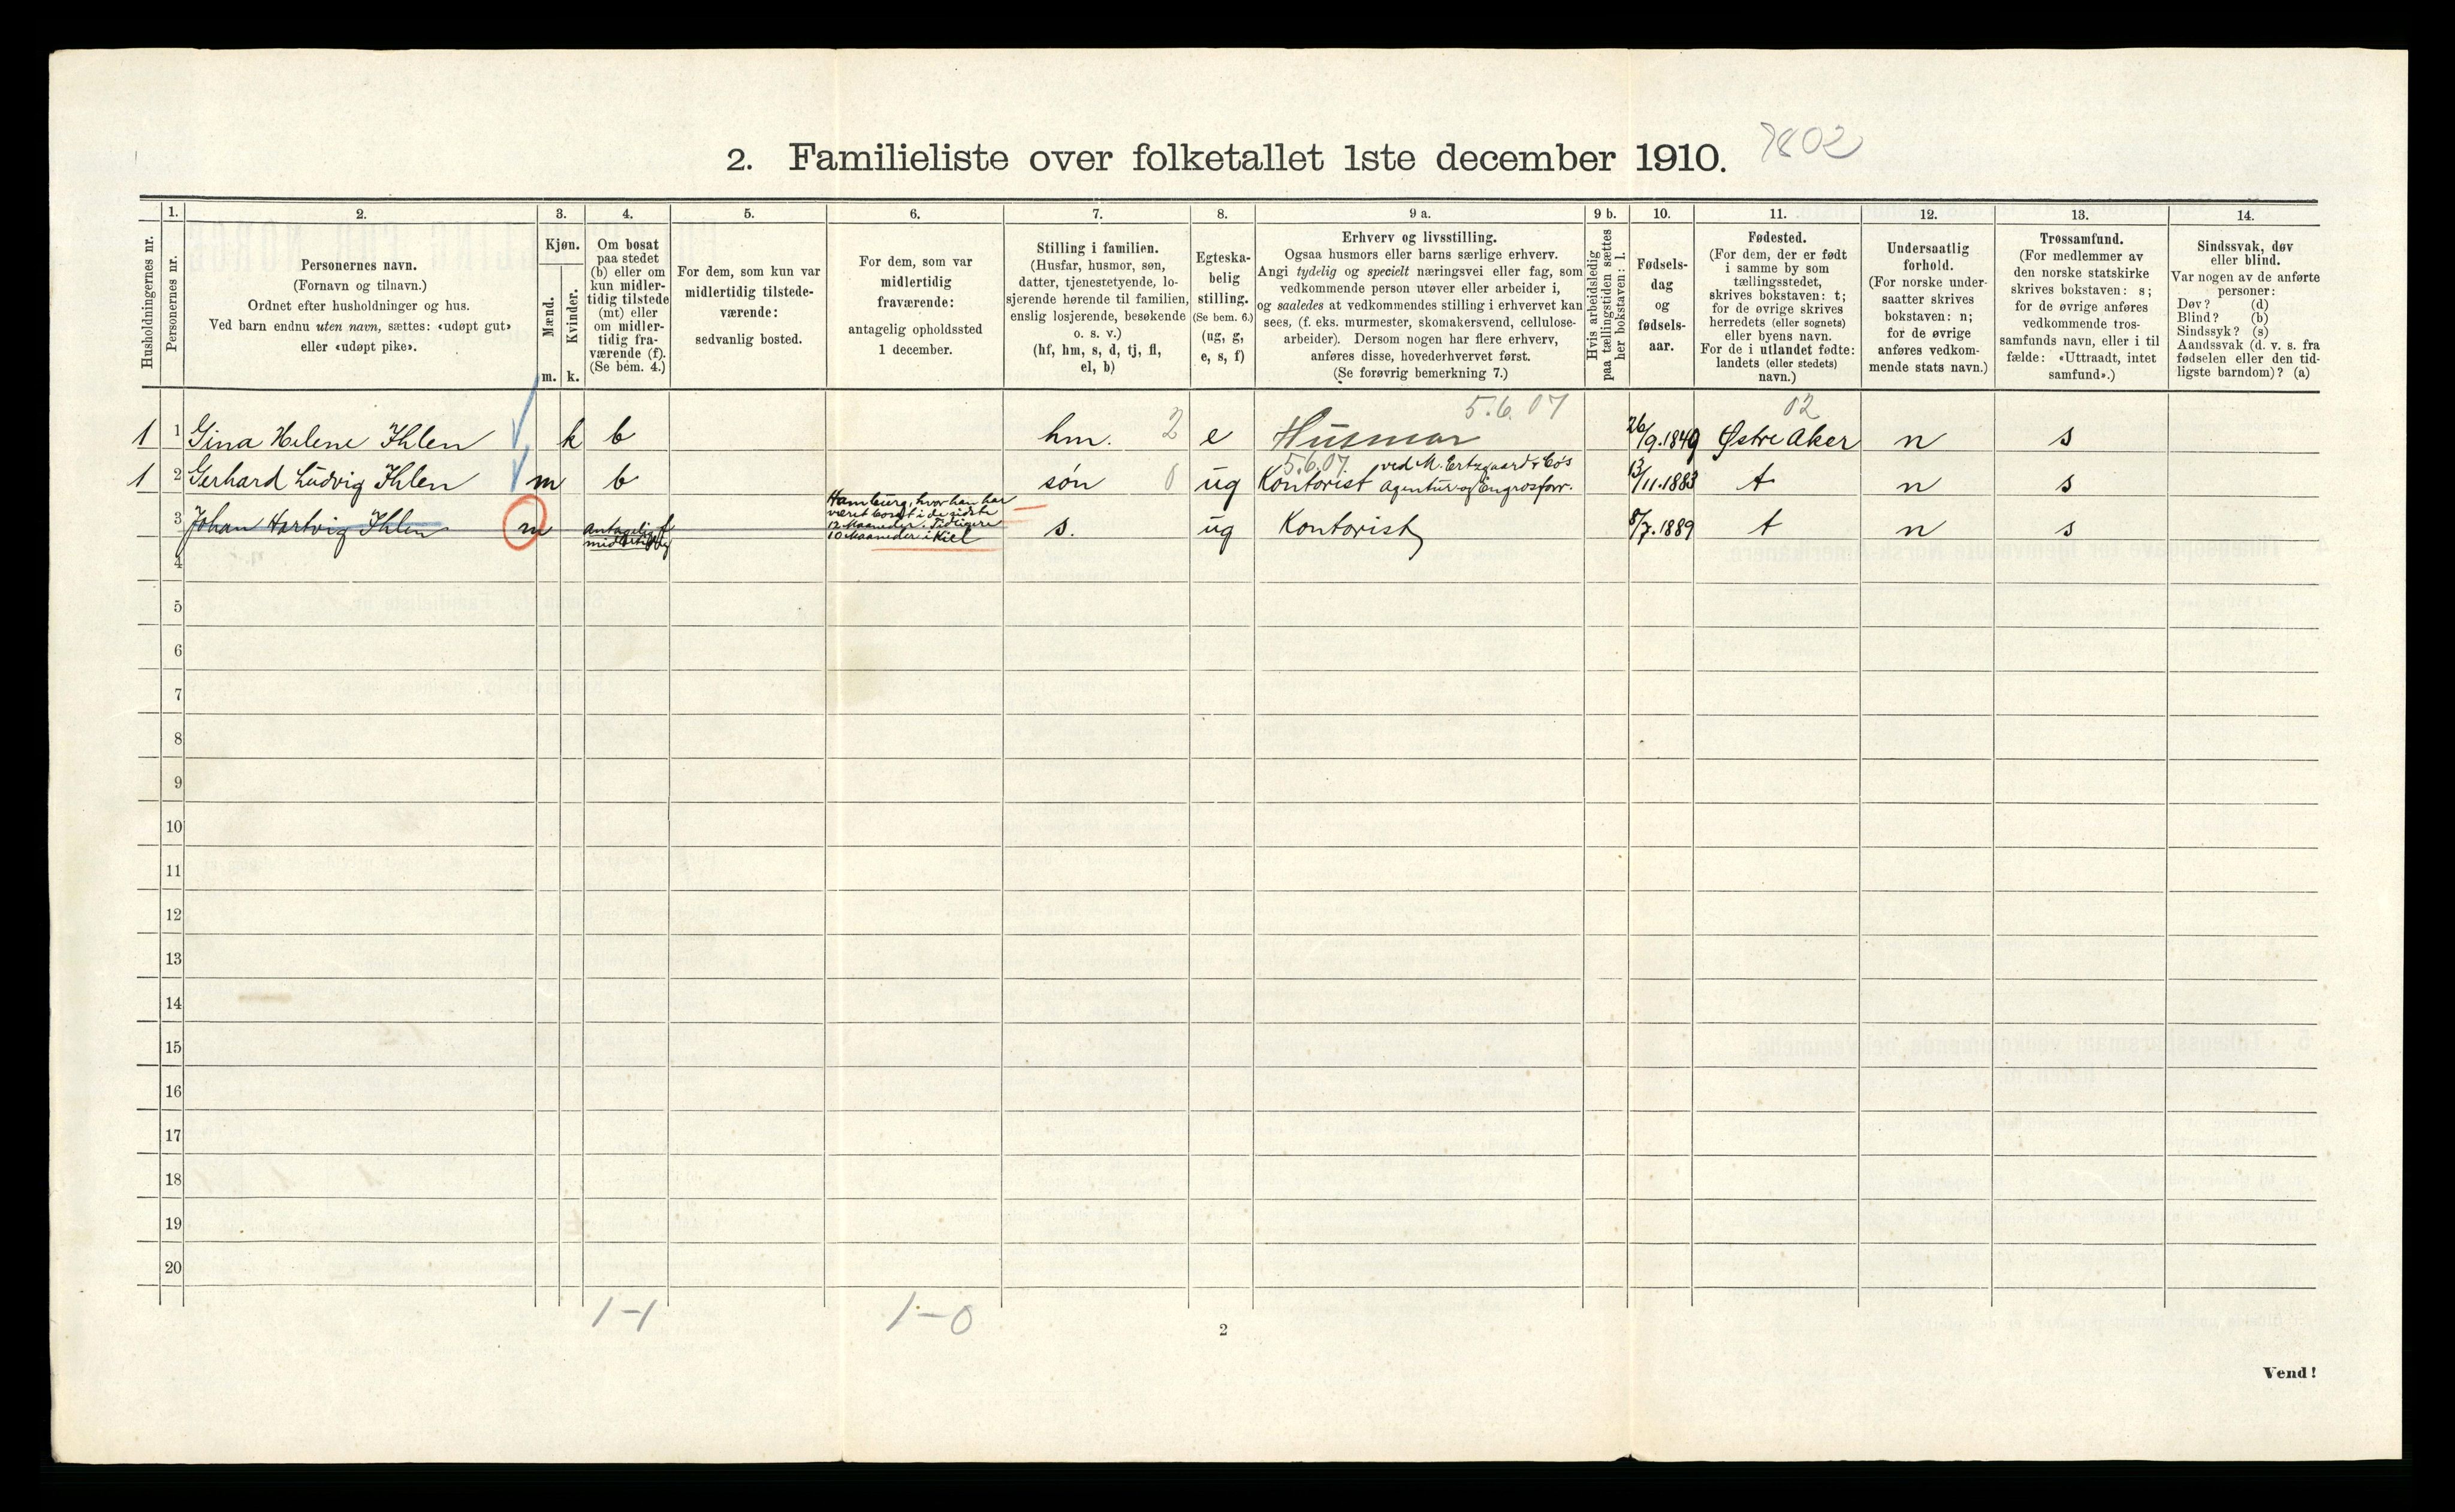 2. Familieliste over folketallet 1ste december 1910.
7802
Husholdningernes nr.
1.
Personernes nr.
2.
Personernes navn.
(Fornavn og tilnavn.)
Ordnet efter husholdninger og hus.
Ved barn endnu uten navn, sættes: «udøpt gut»
eller «udøpt pike».
3.
Kjøn.
Mænd.
Kvinder.
m. k.
4.
Om bosat
paa stedet
(b) eller om
kun midler-
tidig tilstede
(mt) eller
om midler-
tidig fra-
værende (f).
(Se bem. 4.)
5.
For dem, som kun var
midlertidig tilstede-
værende:
sedvanlig bosted.
6.
For dem, som var
midlertidig
fraværende:
antagelig opholdssted
1 december.
7.
Stilling i familien.
(Husfar, husmor, søn,
datter, tjenestetyende, lo-
sjerende hørende til familien,
enslig losjerende, besøkende
o. s. v.)
(hf, hm, s, d, tj, fl,
el, b)
8.
Egteska-
belig
stilling.
(Se bem. 6.)
(ug, g,
e, s, f)
9 a.
Erhverv og livsstilling.
Ogsaa husmors eller barns særlige erhverv.
Angi tydelig og specielt næringsvei eller fag, som
vedkommende person utøver eller arbeider i,
og saaledes at vedkommendes stilling i erhvervet kan
sees, (f. eks. murmester, skomakersvend, cellulose-
arbeider). Dersom nogen har flere erhverv,
anføres disse, hovederhvervet først.
(Se forøvrig bemerkning 7.)
9 b.
Hvis arbeidsledig
paa tællingstiden sættes
her bokstaven: l.
10.
Fødsels-
dag
og
fødsels-
aar.
11.
Fødested.
(For dem, der er født
i samme by som
tællingsstedet,
skrives bokstaven: t;
for de øvrige skrives
herredets (eller sognets)
eller byens navn.
For de i utlandet fødte:
landets (eller stedets)
navn.)
12.
Undersaatlig
forhold.
(For norske under-
saatter skrives
bokstaven: n;
for de øvrige
anføres vedkom-
mende stats navn.)
13.
Trossamfund.
(For medlemmer av
den norske statskirke
skrives bokstaven: s;
for de øvrige anføres
vedkommende tros-
samfunds navn, eller i til
fælde: «Uttraadt, intet
samfund».)
14.
Sindssvak, døv
eller blind.
Var nogen av de anførte
personer:
Døv? (d)
Blind? (b)
Sindssyk? (s)
Aandssvak (d. v. s. fra
fødselen eller den tid-
ligste barndom)? (a)
5.6.07 02
1 1 Gina Helene Ihlen k b hm. 2 e Husmor 26/9.1849 Østre Aker n s
5.6.07. ved M. Ertzgaard & Co's
1 2 Gerhard Ludvig Ihlen m b søn 0 ug Kontorist Agentur og Engrosforr. 13/11.1883 t n s
Hamburg, hvor han har
været bosat i de sidste
12 Maaneder. Tidligere
10 Maaneder i Kiel
3 Johan Hartvig Ihlen m antagelig f
midlertidig s. ug Kontorist 8/7.1889 t n s
4
5
6
7
8
9
10
11
12
13
14
15
16
17
18
19
20
1-1 1-0
2
Vend!